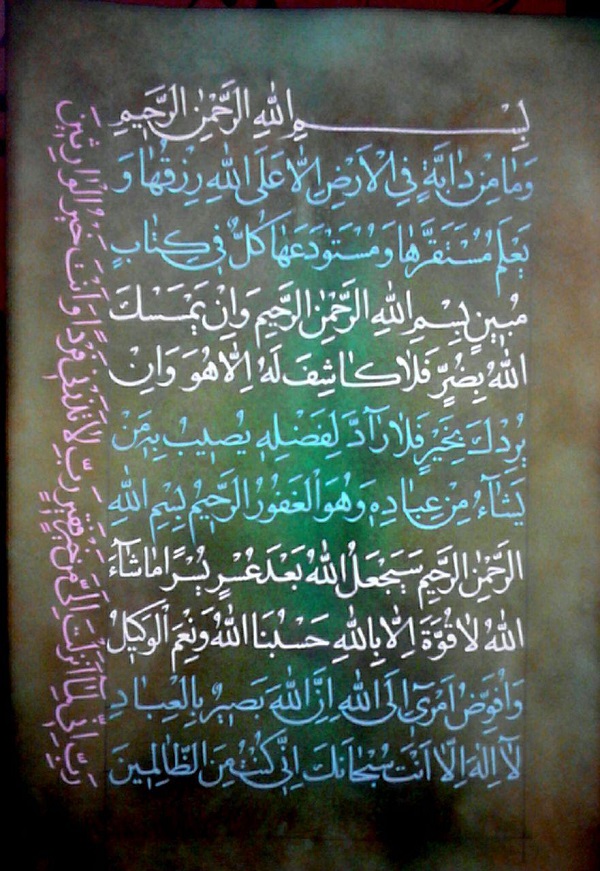 بِسْمِ اللهِ الرَّحْمٰنِ الرَّحِيمِ
وَمَا مِنْ دَابَّةٍ فِي الْاَرْضِ اِلَّا عَلَى اللهِ رِزْقُهَا وَ
يَعْلَمُ مُسْتَقَرَّهَا وَمُسْتَوْدَعَهَا كُلٌّ فِي كِتَابٍ
مُبِينٍ بِسْمِ اللهِ الرَّحْمٰنِ الرَّحِيمِ وَاِنْ يَمْسَسْكَ
اللهُ بِضُرٍّ فَلَا كَاشِفَ لَهُ اِلَّا هُوَ وَاِنْ
يُرِدْكَ بِخَيْرٍ فَلَا رَآدَّ لِفَضْلِهِ يُصِيبُ بِهِ مَنْ
يَشَآءُ مِنْ عِبَادِهِ وَهُوَ الْغَفُورُ الرَّحِيمُ بِسْمِ اللهِ
الرَّحْمٰنِ الرَّحِيمِ سَيَجْعَلُ اللهُ بَعْدَ عُسْرٍ يُسْرًا مَا شَآءَ
اللهُ لَا قُوَّةَ اِلَّا بِاللهِ حَسْبُنَا اللهُ وَنِعْمَ الْوَكِيلُ
وَاُفَوِّضُ اَمْرِيٓ اِلَى اللهِ اِنَّ اللهَ بَصِيرٌ بِالْعِبَادِ
لَآ اِلٰهَ اِلَّآ اَنْتَ سُبْحَانَكَ اِنِّي كُنْتُ مِنَ الظَّالِمِينَ
رَبِّ اِنِّي لِمَآ اَنْزَلْتَ اِلَيَّ مِنْ خَيْرٍ فَقِيرٌ رَبِّ لَا تَذَرْنِي فَرْدًا وَاَنْتَ خَيْرُ الْوَارِثِينَ